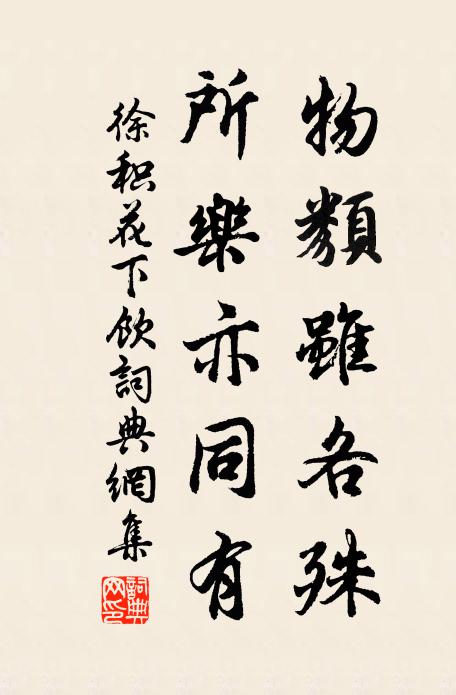 物類雖各殊
所樂亦同有
徐积花下飲詞典網集
詞典網印